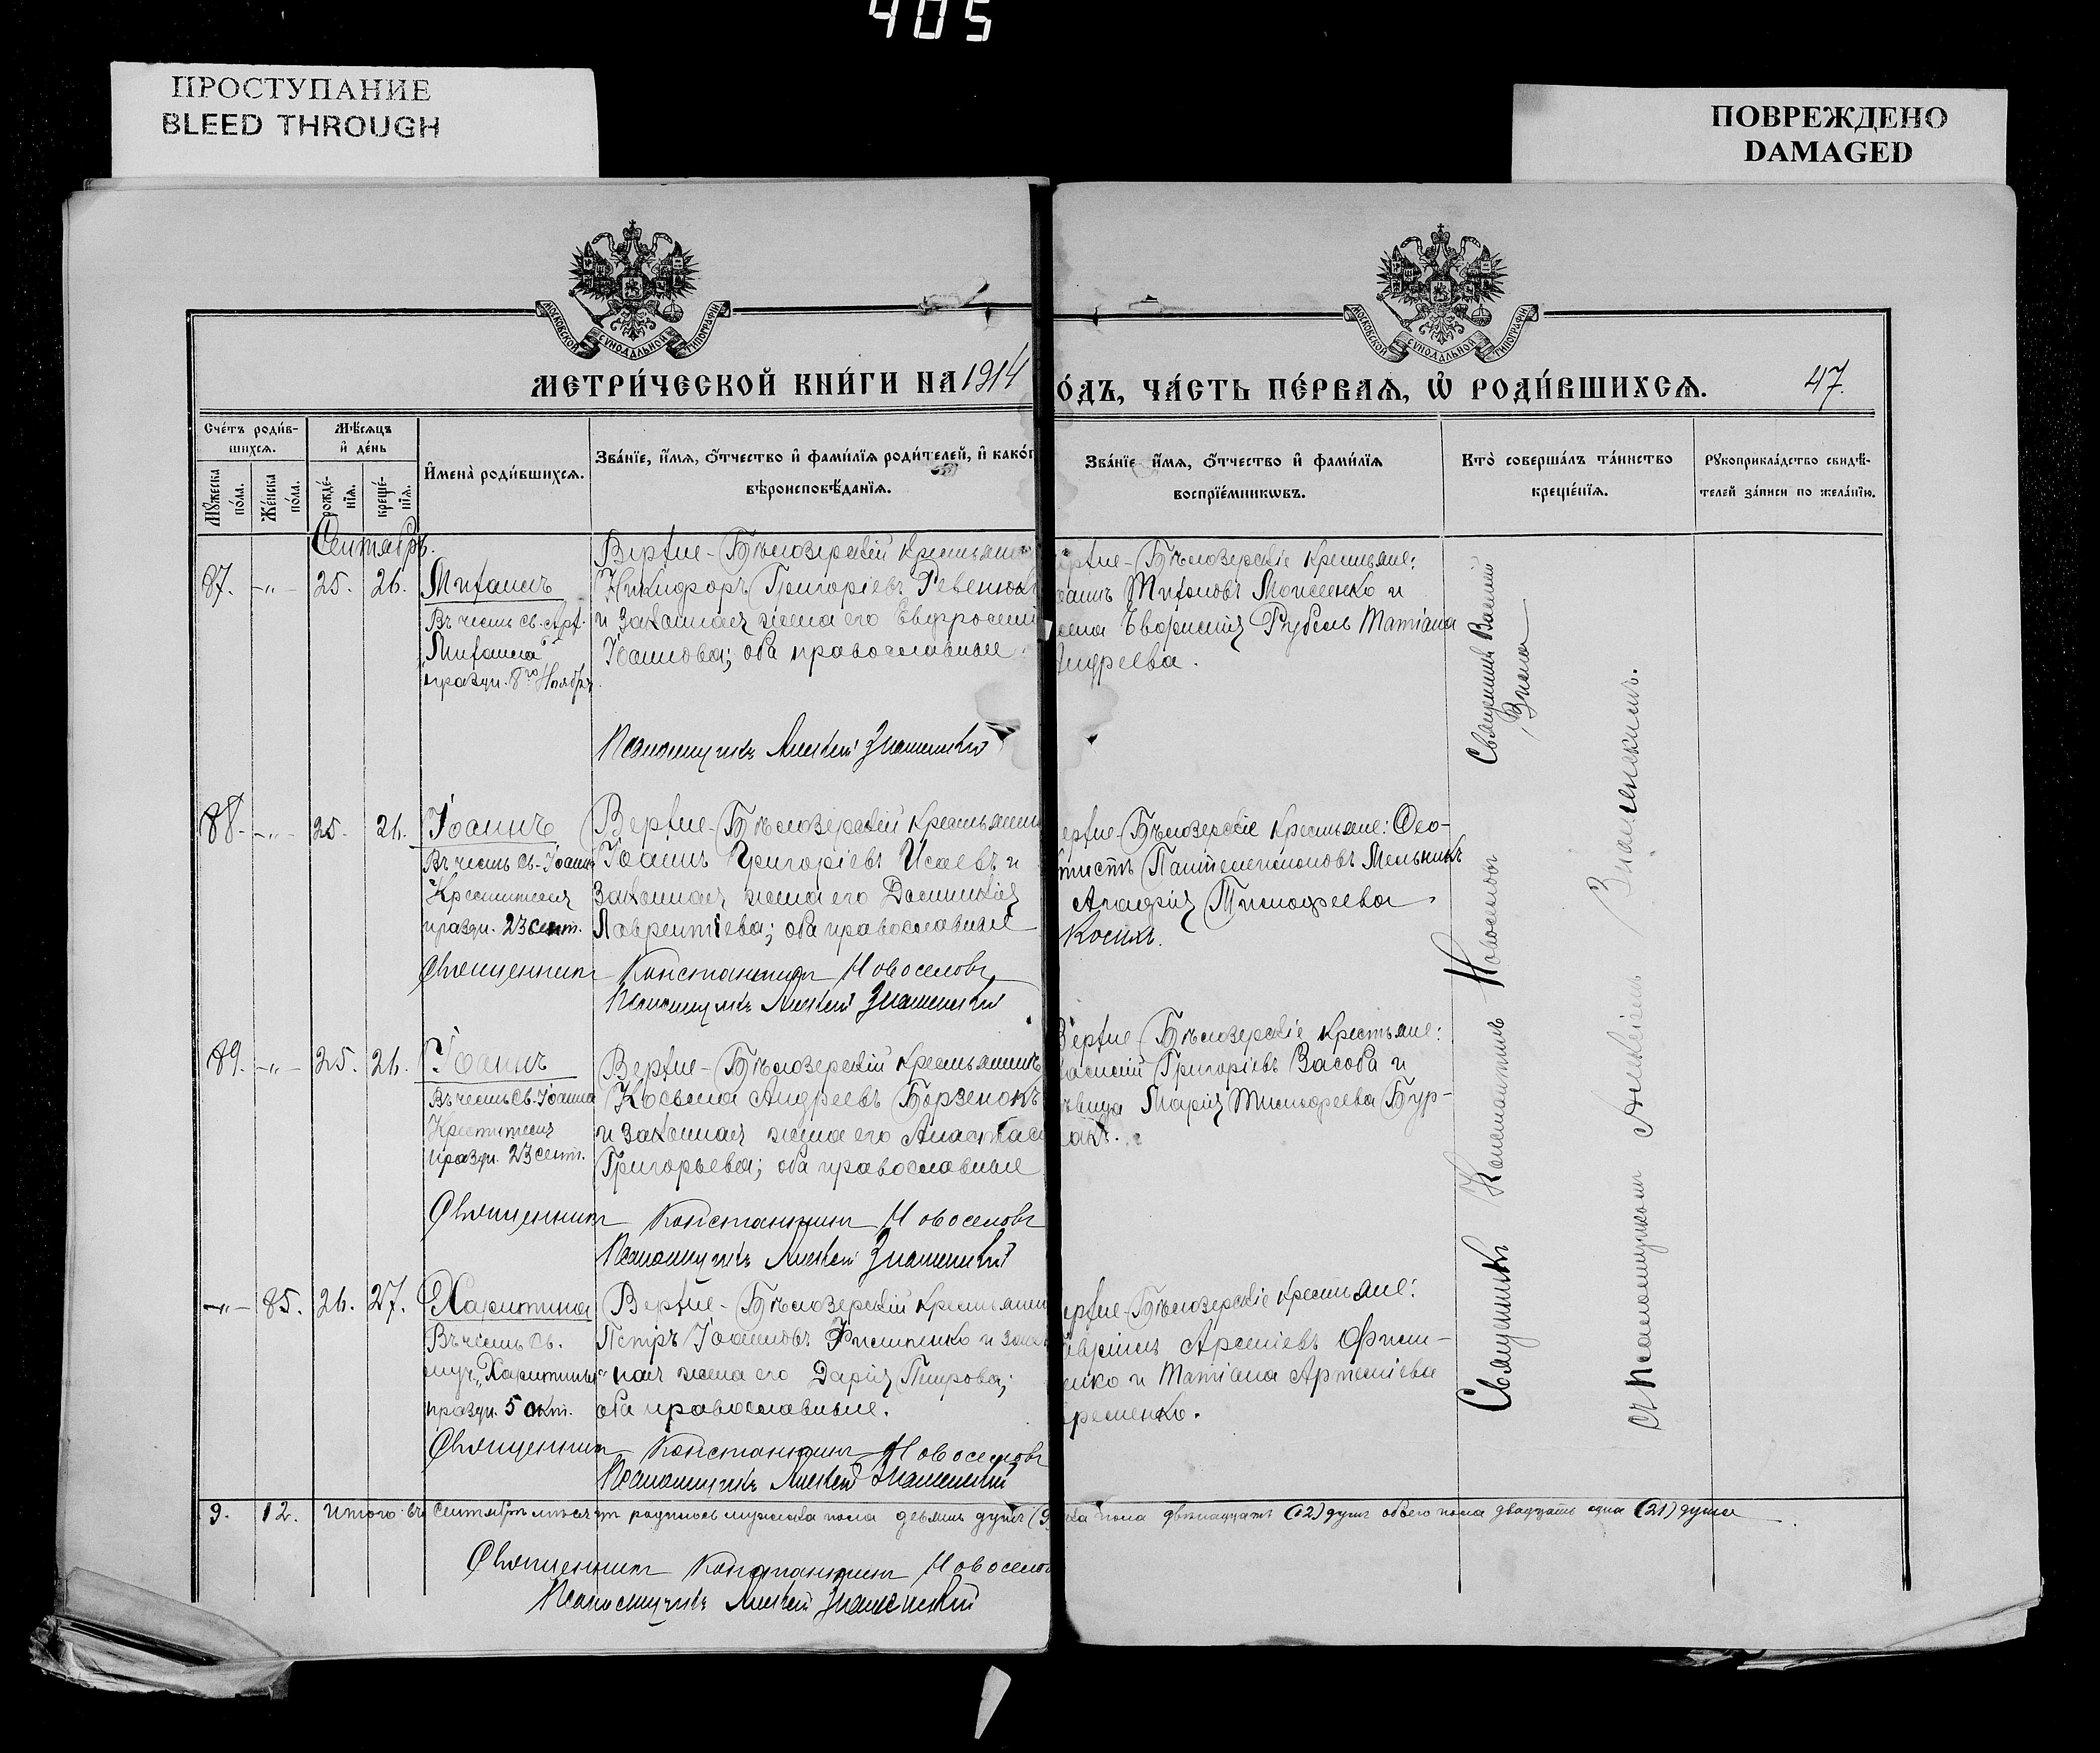 405
ПРОСТУПАНИЕ
BLEED THROUGH
ПОВРЕЖДЕНО
DAMAGED
МОСКОВСКОЙ СѴНОДАЛЬНОЙ ТИПОГРАФІИ
МОСКОВСКОЙ СѴНОДАЛЬНОЙ ТИПОГРАФІИ
МЕТРИ́ЧЕСКОЙ КНИ́ГИ НА 1914
О́ДЪ, ЧА́СТЬ ПЕ́РВАѦ, Ѡ҆ РОДИ́ВШИХСѦ. 47.
Сче́тъ роди́в-
шихсѧ.
Мѣсѧцъ
и҆ де́нь
Мꙋжеска по́ла.
Же́нска по́ла.
рожде́-нїѧ.
креще́-нїѧ.
И҆мена̀ роди́вшихсѧ.
Зва́нїе, и҆́мѧ, ѻ҆́тчество и҆ фами́лїѧ роди́телей, и҆ како́г
вѣроисповѣ́данїѧ.
Зва́нїе и҆́мѧ, ѻ҆́тчество и҆ фами́лїѧ
воспрїе́мникѡвъ.
Кто̀ соверша́лъ та́инство
креще́нїѧ.
Рꙋкоприкла́дство свидѣ́-
телей за́писи по жела́нїю.
Сентябрь.
87. -"- 25. 26. Михаилъ
Въ честь св. Арх.
"Михаила"
праздн. 8го Ноября.
Верхне-Бѣлозерскій крестьянин
Никифоръ Григоріевъ Ревенко
и законная жена его Евфросині
Іоаннова; оба православные.
Псаломщикъ Алексѣй Знаменскій
ерхне-Бѣлозерскіе крестьяне:
оаннъ Тихоновъ Моисеенко и
Рубель Татіана
Андреева.
Священникъ Василій
88. -"- 25. 26. Іоаннъ
Въ честь св. Іоанна
Крестителя
праздн. 23 сент.
Верхне-Бѣлозерскій крестьянин
Іоаннъ Григоріевъ Исаевъ и
законная жена его Домникія
Лаврентіева; оба православные
Священникъ Константинъ Новоселовъ
Псаломщикъ Алексѣй Знаменскій
ерхне-Бѣлозерскіе крестьяне: Ѳео-
ктистъ Пантелеимоновъ Мельникъ
Агафія Тимофеева
Косикъ.
89. -"- 25. 26. Іоаннъ
Въ честь св. Іоанна
Крестителя
праздн. 23 сент.
Верхне-Бѣлозерскій крестьянинъ
Косьма Андреевъ Борзенокъ
и законная жена его Анастасі
Григорьева; оба православные
Священникъ Константинъ Новоселовъ
Псаломщикъ Алексѣй Знаменскій
Верхне-Бѣлозерскіе крестьяне:
асилій Григоріевъ Засоба и
ѣвица Марія Тимофеева Бур-
лакъ.
-"- 85. 26. 27. Харитина
Въ честь св.
муч. "Харитины"
праздн. 5 окт.
Верхне-Бѣлозерскій крестьянин
Петръ Іоанновъ Филипенко и закон
ная жена его Дарія Петрова;
оба православные.
Священникъ Константинъ Новоселовъ
Псаломщикъ Алексѣй Знаменскій
ерхне-Бѣлозерскіе крестьяне:
авріилъ Арсеніевъ Филип-
енко и Татіана Артеміева
ременко.
Священникъ Константинъ Новоселовъ
съ Псаломщикомъ Алексіемъ Знаменскимъ.
9. 12. Итого въ Сентябрѣ мѣсяцѣ родилось мужеска пола девять душъ (9) ска пола двѣнадцать (12) душъ обоего пола двадцать одна (21) душа
Священникъ Константинъ Новоселов
Псаломщикъ Алексѣй Знаменскій